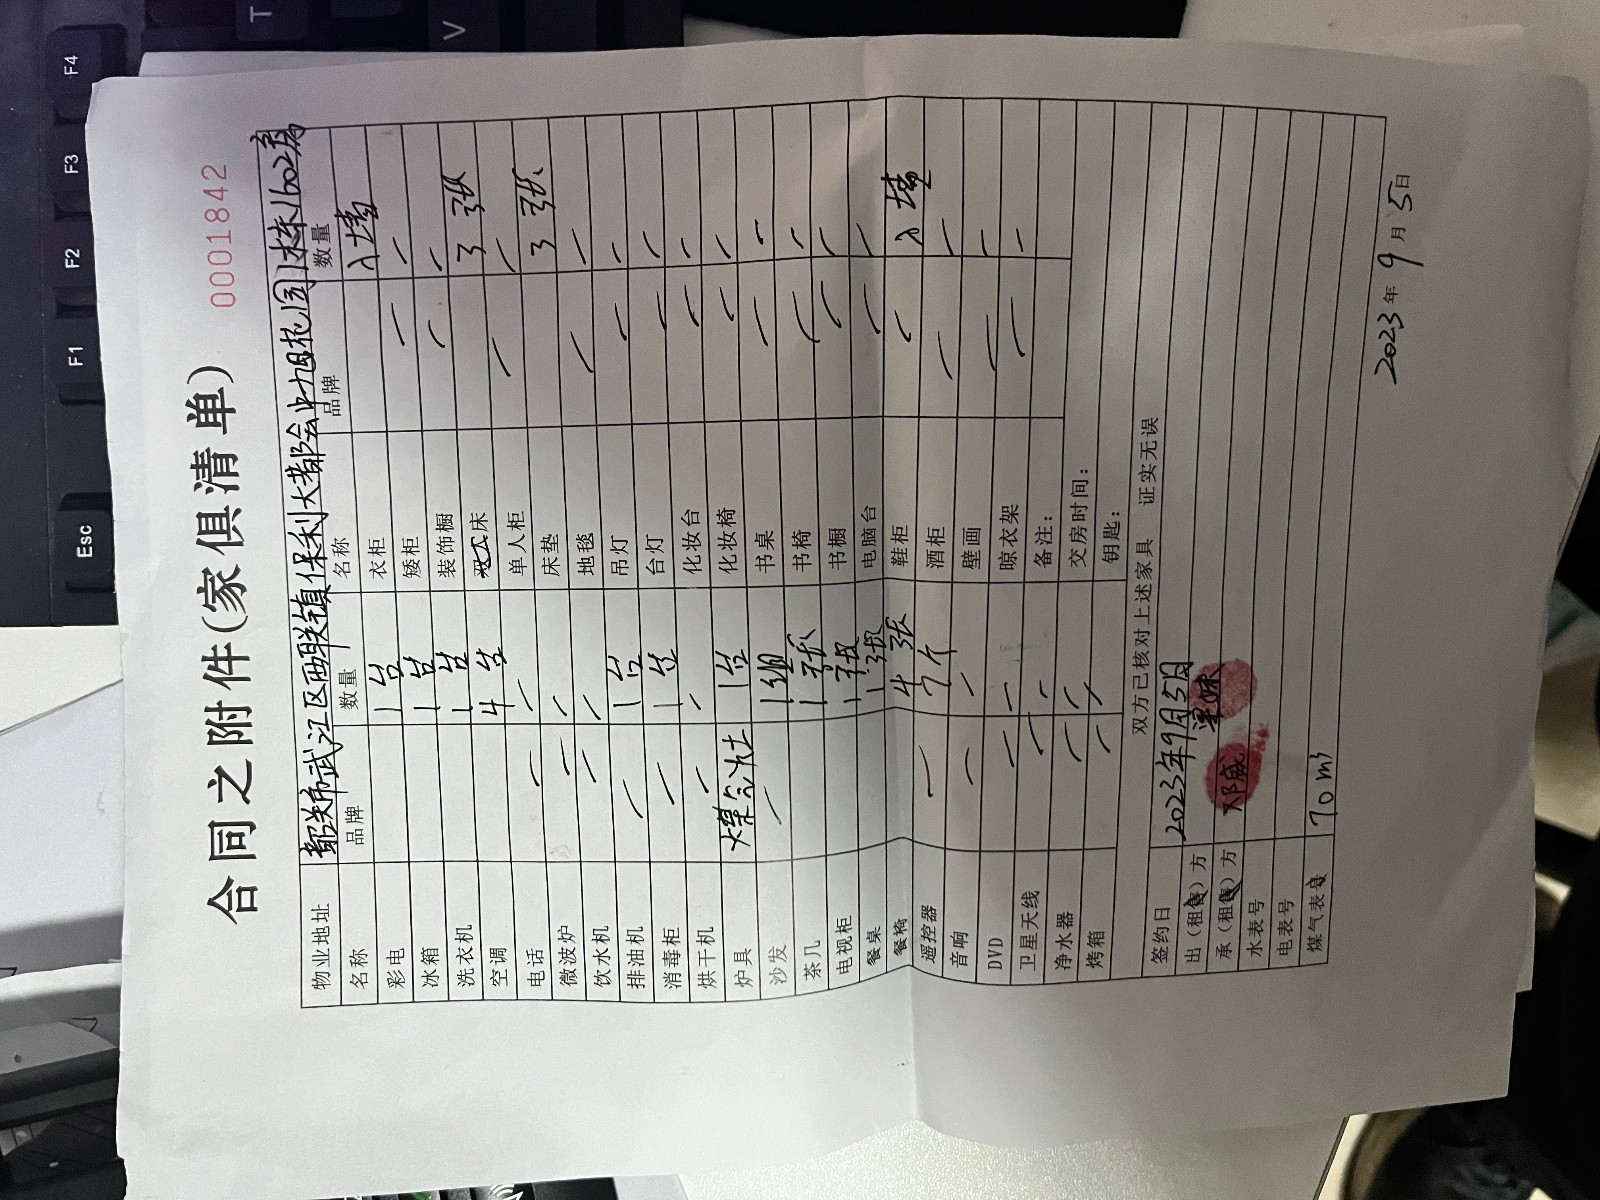 合同之附件(家俱清单)
00018​42
物业地址 韶关市武江区西联镇保利大都会中旭花园1栋1602房
名称 品牌 数量 名称 品牌 数量
彩电 1台 衣柜 入墙
冰箱 1台 矮柜 / /
洗衣机 1台 装饰橱 / /
空调 4台 床 3张
电话 / / 单人柜 / /
微波炉 / / 床垫 3张
饮水机 / / 地毯 / /
排油机 / 1台 吊灯 / /
消毒柜 / 1台 台灯 / /
烘干机 / / 化妆台 / /
炉具 煤气灶 1台 化妆椅 / /
沙发 / 1组 书桌 / /
茶几 1张 书椅 / /
电视柜 1张 书橱 / /
餐桌 1张 电脑台 / /
餐椅 4张 鞋柜 / 入墙
遥控器 / 7个 酒柜 / /
音响 / / 壁画 / /
DVD / / 晾衣架 / /
卫星天线 / / 备注:
净水器 / / 交房时间:
烤箱 / / 钥匙:
双方已核对上述家具 证实无误
签约日 2023年9月5日
出(租售)方 梁妹
承(租售)方 邓威
水表号
电表号
煤气表 70m³
2023年9月5日
Esc
F1
F2
F3
F4
T
V